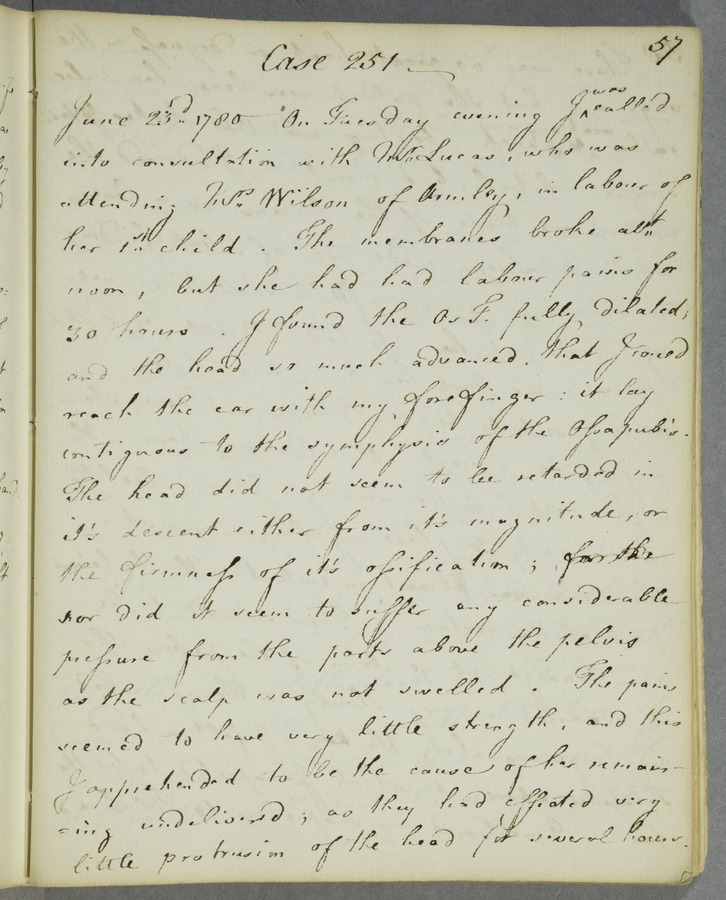 57
Case 251
June 23d 1780 On Tuesday evening I was called
into consultation with Mr. Lucas, who was
attending Mrs. Wilson of Armley, in labour of
her 1st child. The membranes broke abt.
noon, but she had had labour pains for
30 hours. I found the Os T. fully dilated;
and the head so much advanced, that I coued
reach the ear with my forefinger: it lay
contiguous to the symphysis of the Ossa pubis.
The head did not seem to be retarded in
it's descent either from it's magnitude, or
the firmness of it's ossification; for the
nor did it seem to suffer any considerable
pressure from the parts above the pelvis
as the scalp was not swelled. The pains
seemed to have very little strength, and this
I apprehended to be the cause of her remain-
=ing undelivered; as they had effected very
little protrusion of the head for several hours.